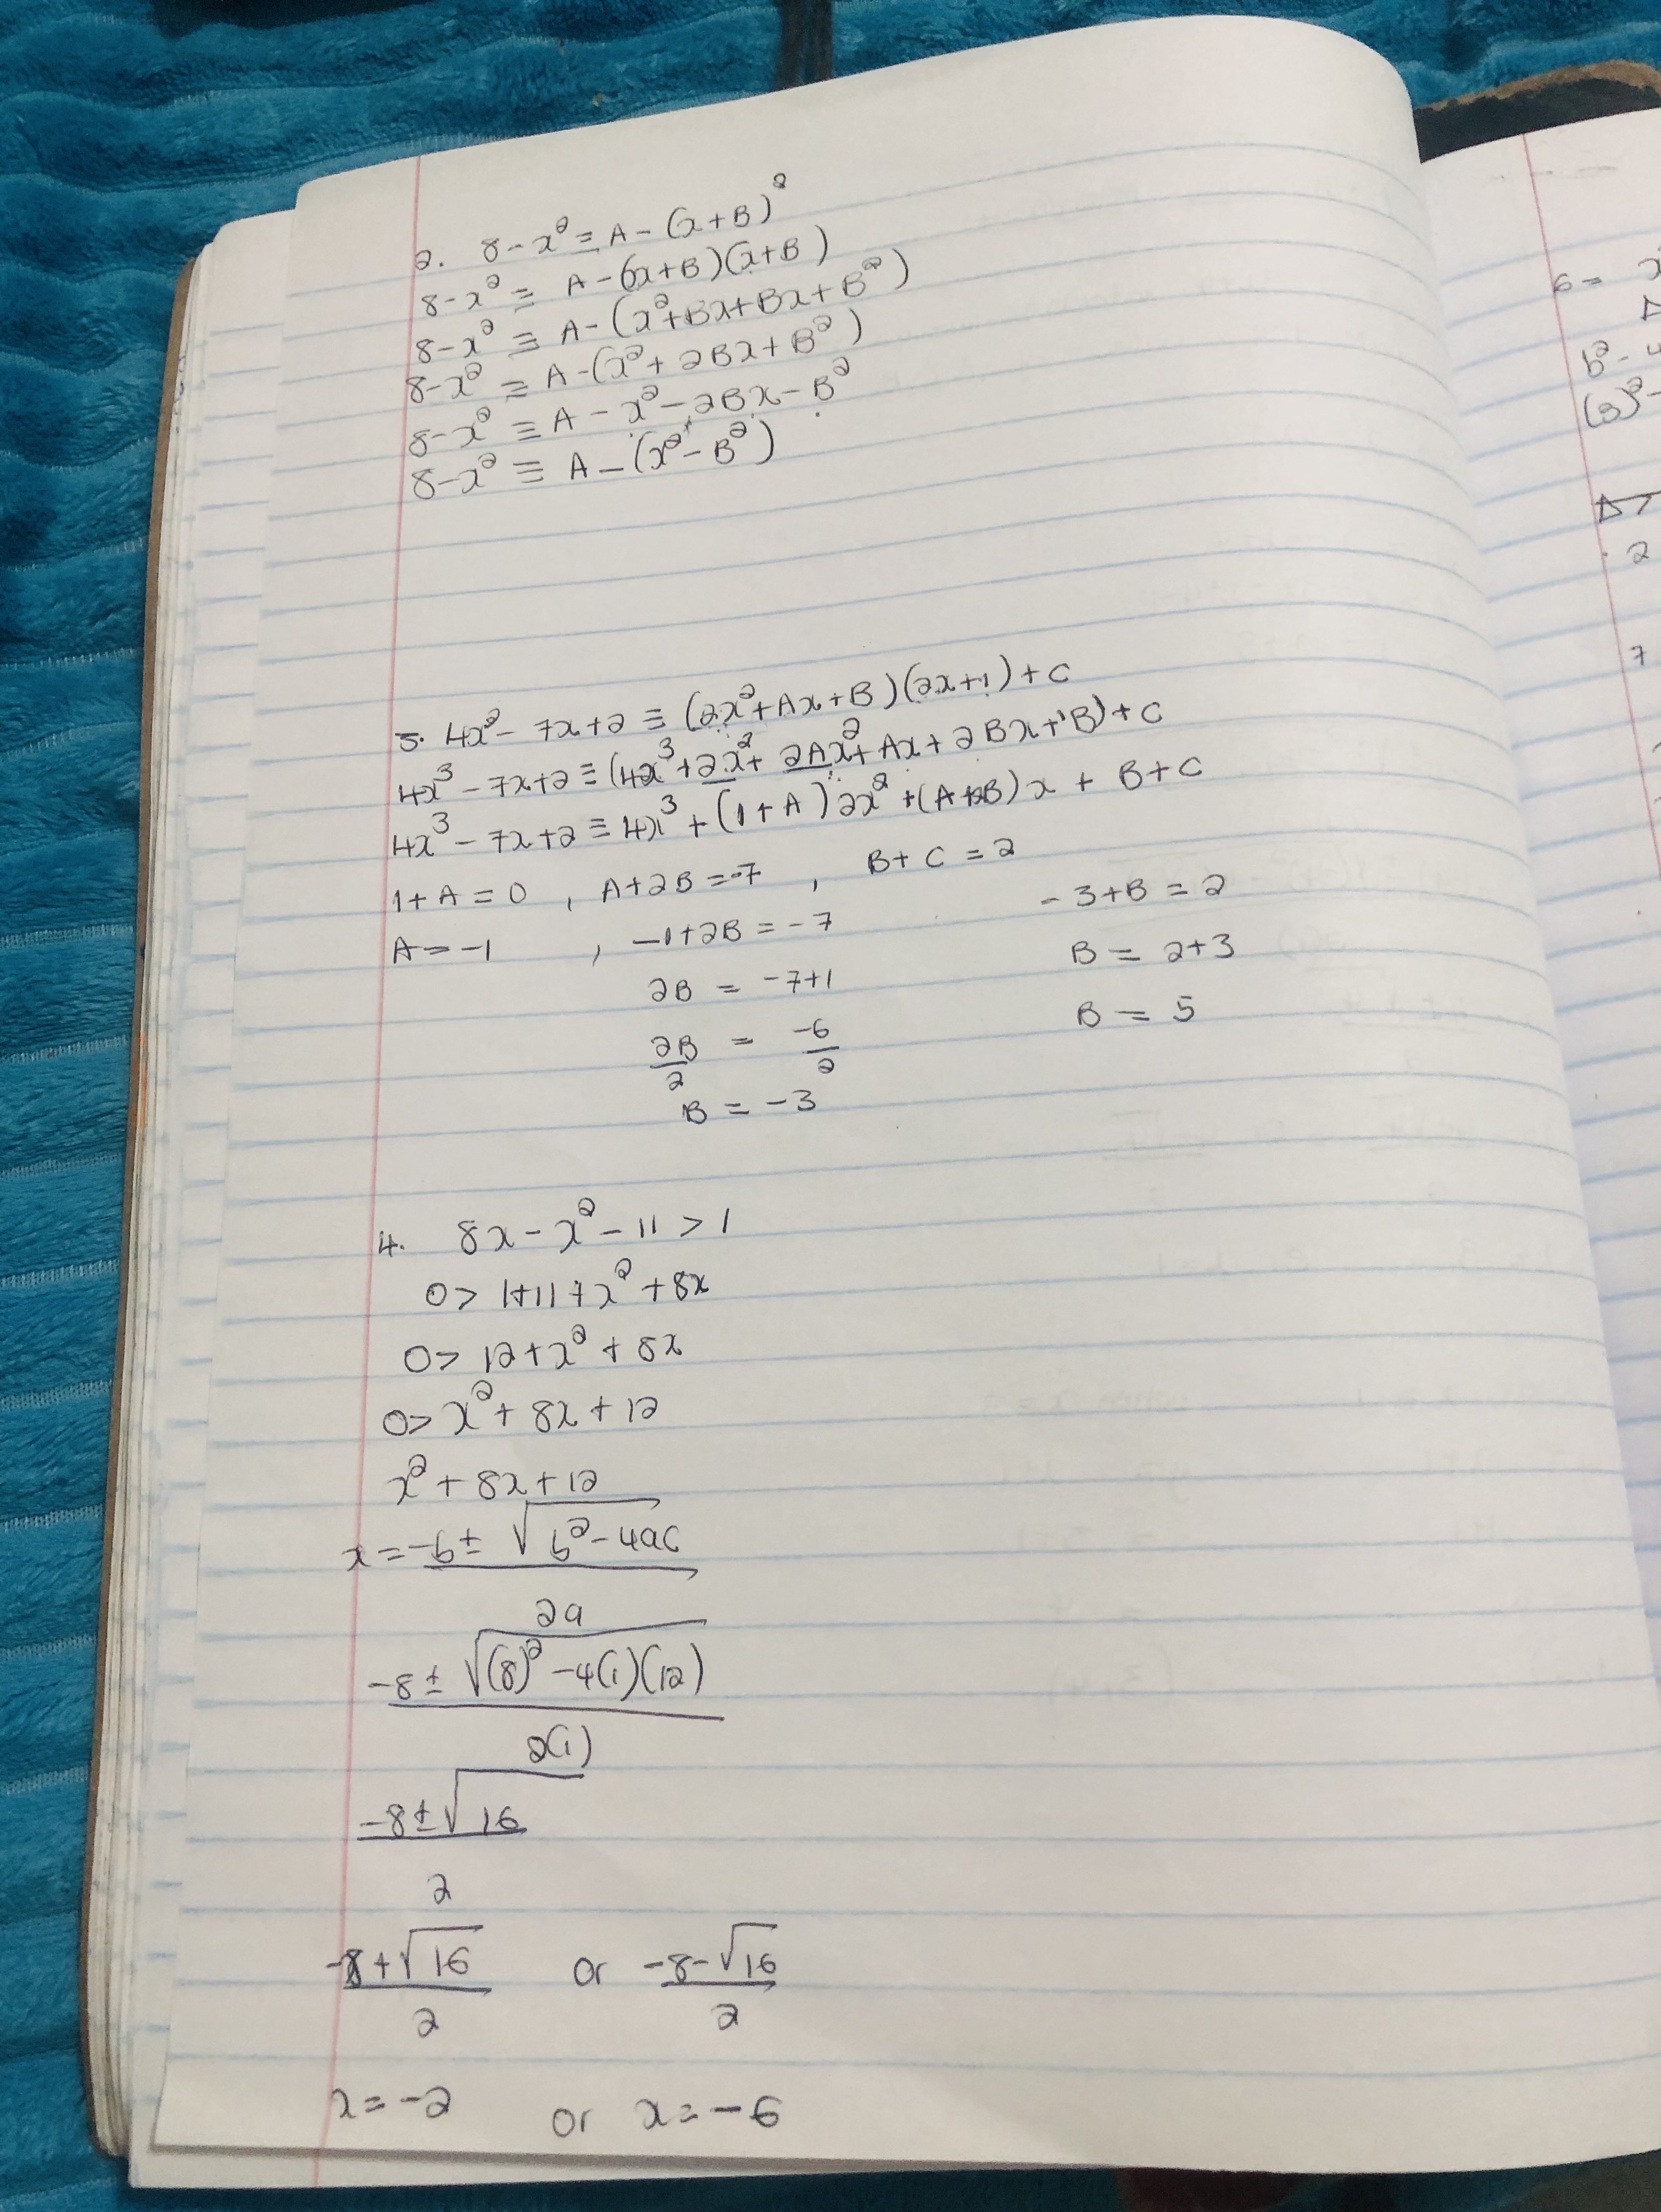 2. 8-x² ≡ A-(x+B)²
8-x² ≡ A-(x+B)(x+B)
8-x² ≡ A-(x²+Bx+Bx+B²)
8-x² ≡ A-(x²+2Bx+B²)
8-x² ≡ A-x²-2Bx-B²
8-x² ≡ A-(x²-B²)
3. 4x²-7x+2 ≡ (2x²+Ax+B)(2x+1)+C
4x³-7x+2 ≡ (4x³+2x²+2Ax²+Ax+2Bx+B)+C
4x³-7x+2 ≡ 4x³+(1+A)2x²+(A+2B)x + B+C
1+A=0 , A+2B=-7 , B+C=2
A=-1 , -1+2B=-7 -3+B=2
2B = -7+1 B = 2+3
2B/2 = -6/2 B = 5
B = -3
4. 8x-x²-11>1
0> 1+11+x²+8x
0> 12+x²+8x
0> x²+8x+12
x²+8x+12
x = -b±√b²-4ac
2a
-8±√(8)²-4(1)(12)
2(1)
-8±√16
2
-8+√16 or -8-√16
2 2
x=-2 or x=-6
6= x
b²-4
(3)²-
Δ>
2
7